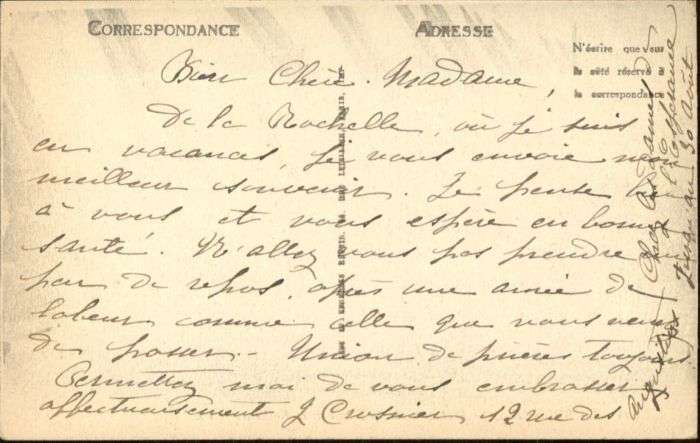 CORRESPONDANCE
ADRESSE
N'écrire que
le côté réservé à
la correspondance
Bien Chère Madame,
De la Rochelle, où je suis
en vacances, je vous envoie mon
meilleur souvenir. Je pense bien
à vous et vous espère en bonne
santé. N'allez vous pas prendre un
peu de repos, après une année de
labeur comme celle que vous venez
de passer. - Union de prières toujours.
Permettez moi de vous embrasser
affectueusement J Crosnier 12 rue des
Augustins
Chez les